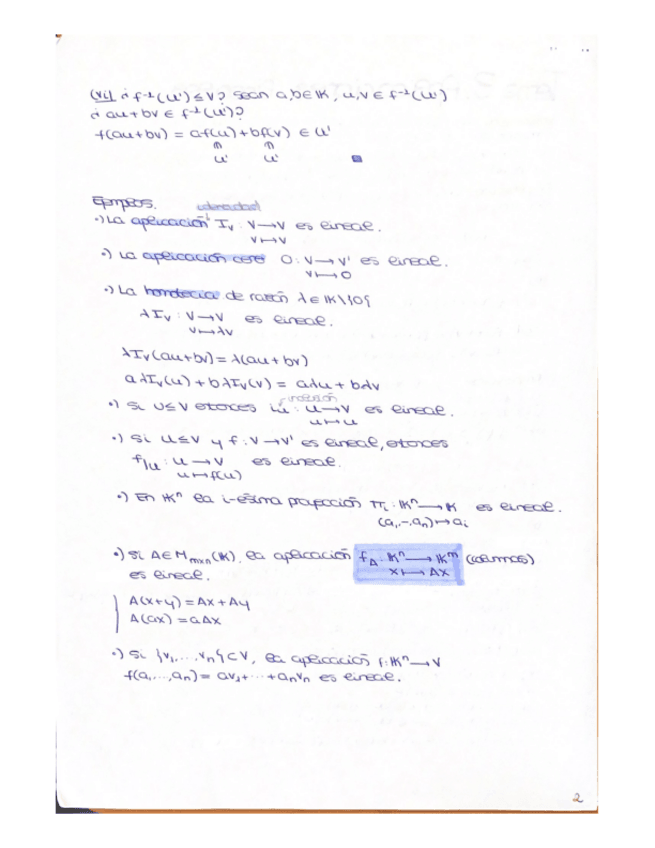 (vi) ¿ f⁻¹(U') ≤ V? Sean a,b ∈ K, u,v ∈ f⁻¹(U')
¿ au+bv ∈ f⁻¹(U')?
f(au+bv) = af(u)+bf(v) ∈ U'
U' U'
Ejemplos. identidad
•) La aplicación I_V : V → V es lineal.
v ↦ v
•) La aplicación cero 0 : V → V' es lineal.
v ↦ 0
•) La homotecia de razón λ ∈ K\{0}
λI_V : V → V es lineal.
v ↦ λv
λI_V(au+bv) = λ(au+bv)
aλI_V(u)+bλI_V(v) = aλu+bλv
inclusión
•) Si U≤V etonces i_U : U → V es lineal.
u ↦ u
•) Si U≤V y f : V → V' es lineal, etonces
f|_U : U → V es lineal.
u ↦ f(u)
•) En Kⁿ la i-ésima proyección π_i : Kⁿ → K es lineal.
(a₁,...,a_n) ↦ a_i
•) Si A ∈ M_{m×n}(K), la aplicación f_A : Kⁿ → K^m (columnas)
x ↦ Ax
es lineal.
A(x+y) = Ax+Ay
A(ax) = aAx
•) Si {v₁,...,v_n} ⊂ V, la aplicación f: Kⁿ → V
f(a₁,...,a_n) = av₁+...+a_nv_n es lineal.
2